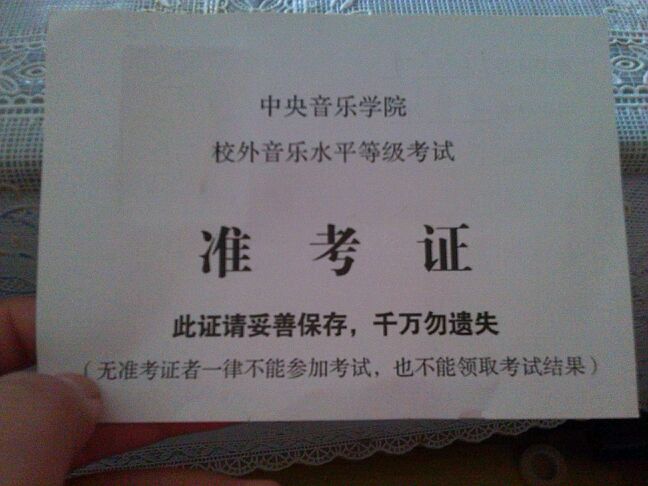 中央音乐学院
校外音乐水平等级考试
准考证
此证请妥善保存，千万勿遗失
（无准考证者一律不能参加考试，也不能领取考试结果）